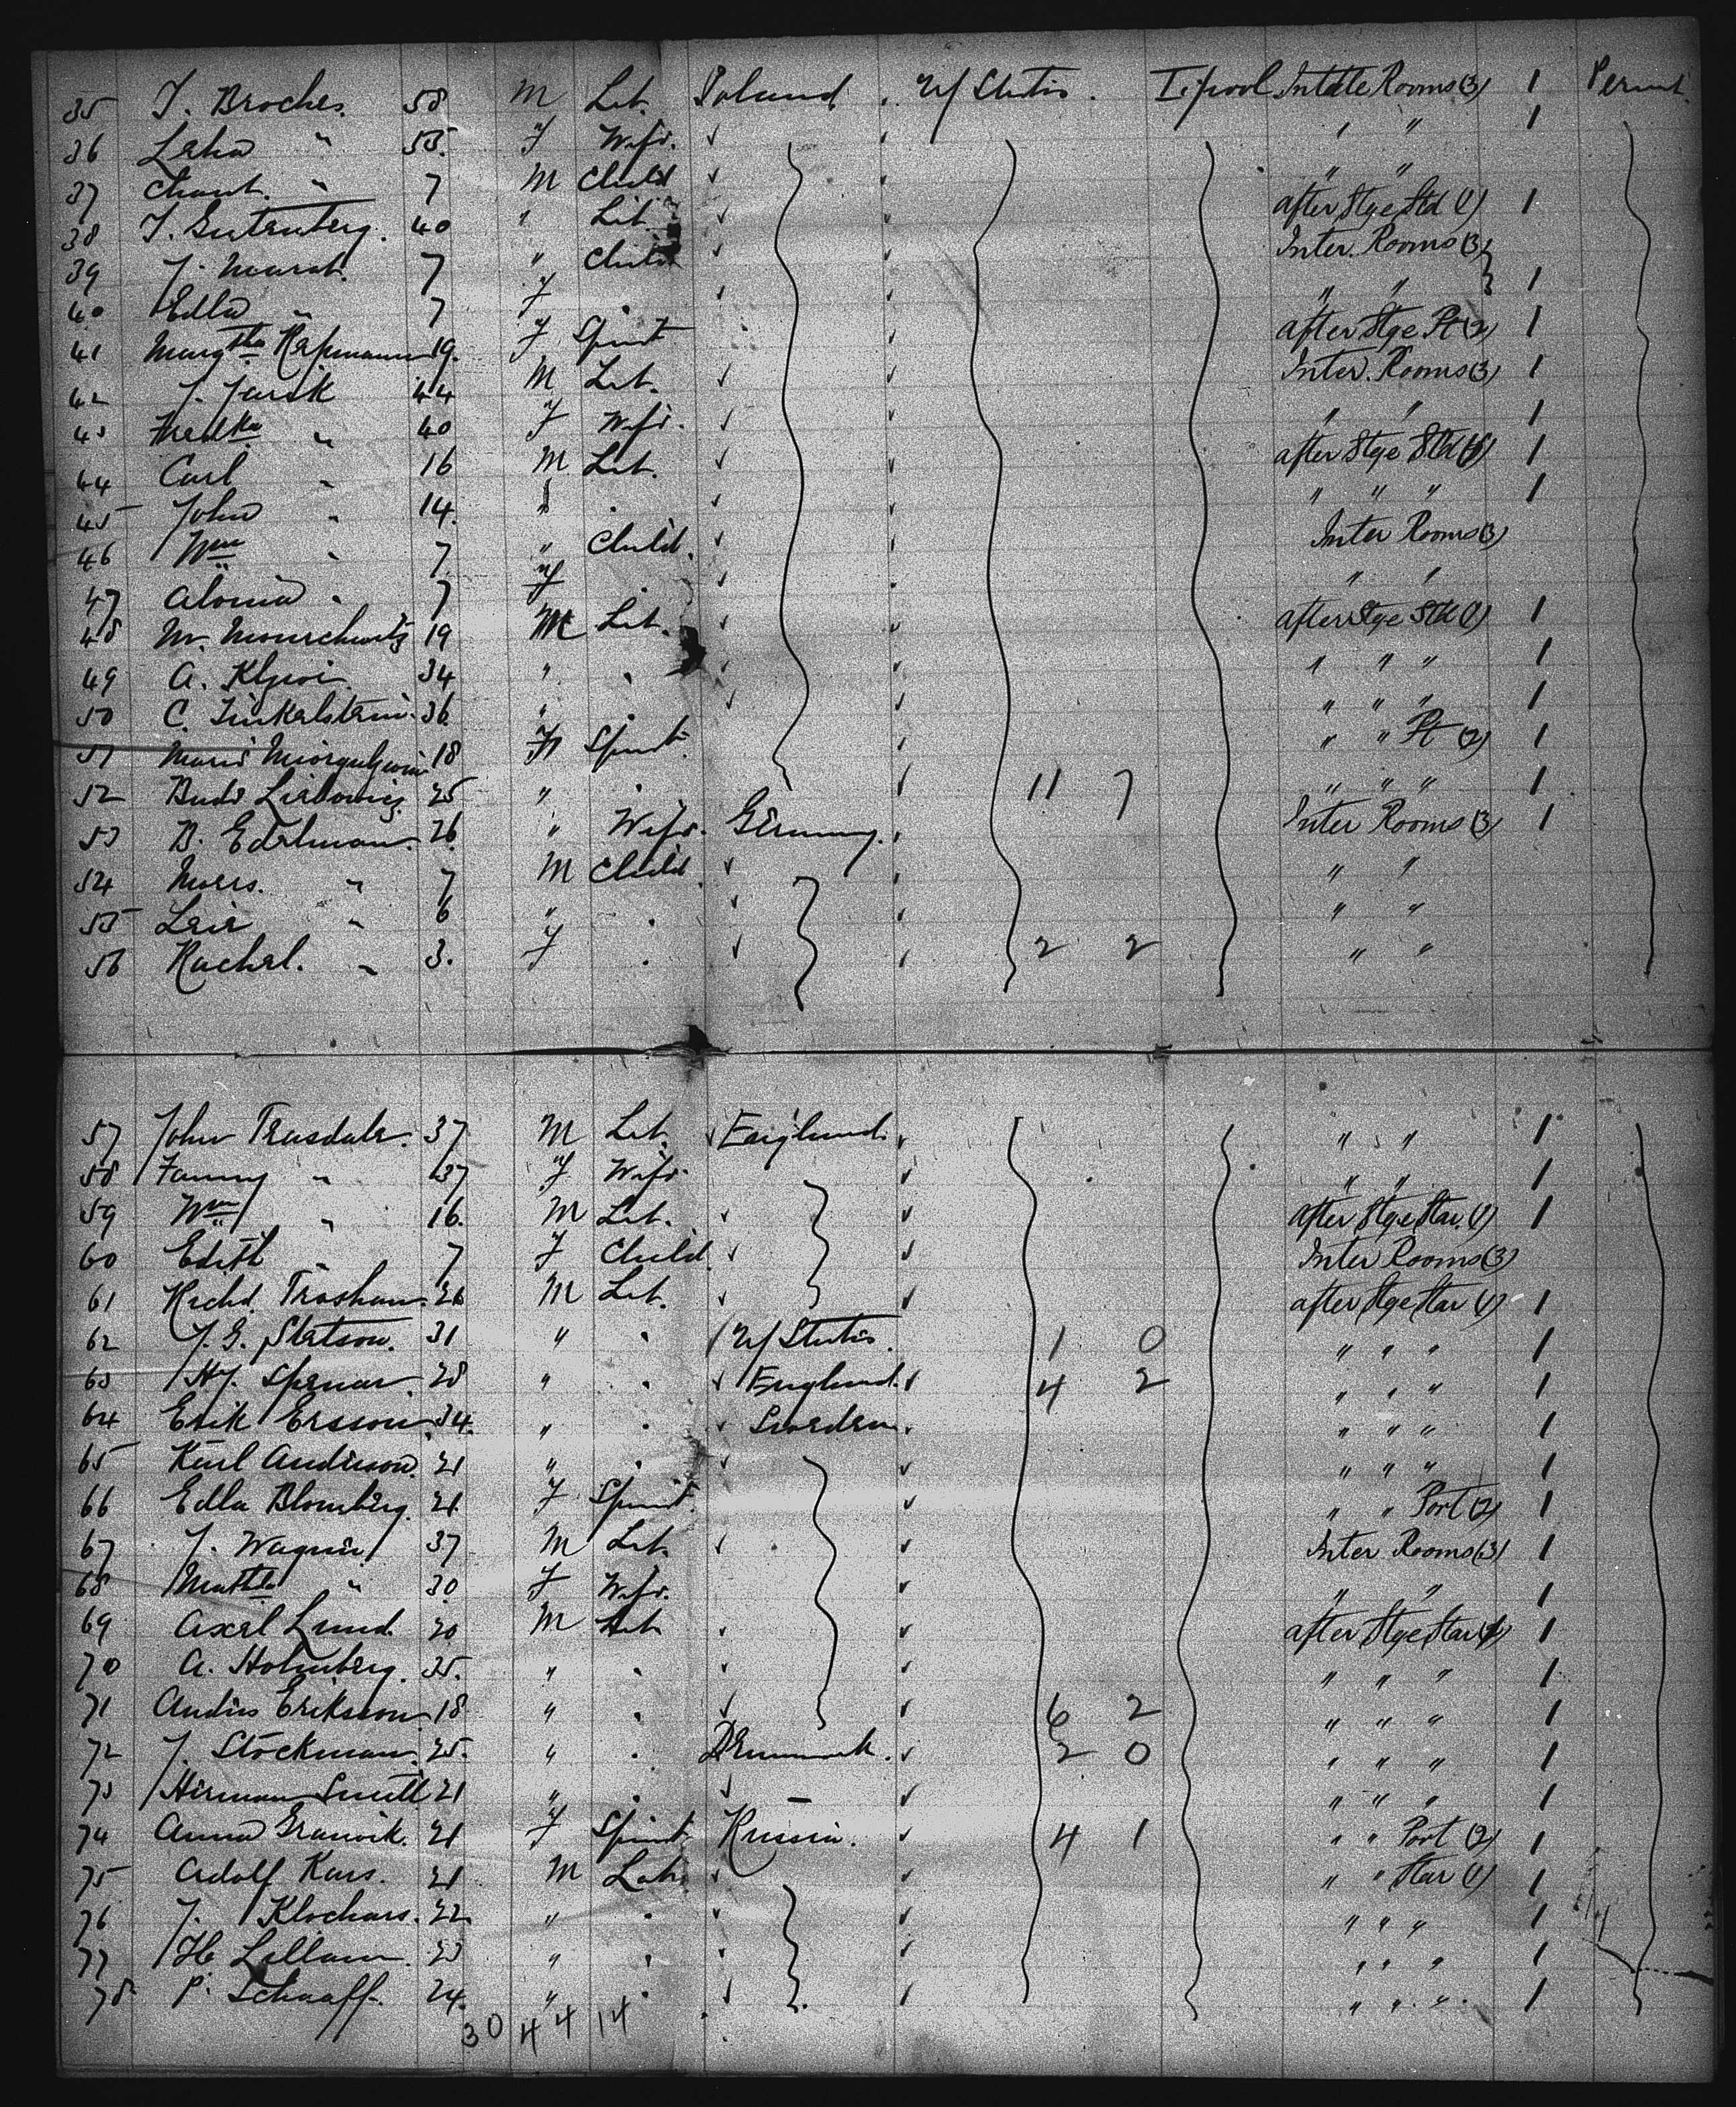 35 J. Broches. 58 M Lab. Poland. U/States. L'pool Intdte Rooms (3) 1 Permt.
36 " 55. F Wife. " " 1
37 " 7 M Child " "
38 J. Gutenberg. 40 " Lab. after Stge Std (1) 1
39 7 " Child Inter. Rooms (3)
40 Edla " 7 F " " 1
41 19. F Spinst after Stge Pt (2) 1
42 44 M Lab. Inter. Rooms (3) 1
43 " 40 F Wife. " "
44 Carl " 16 M Lab. after Stge Std (1) 1
45 John " 14. " " " " 1
46 Wm " 7 " Child. Inter Rooms (3)
47 " 7 F " "
48 M. 19 M Lab. after Stge Std (1) 1
49 A. 34 " " " " 1
50 C. Finkelstein. 36 " " " " 1
51 18 F Spinst. " " Pt (2) 1
52 25 " 11 7 " " " 1
53 B. Edelman. 26 " Wife. Germany. Inter Rooms (3) 1
54 Moers. " 7 M Child. " "
55 " 6 " " "
56 Rachel. " 3. F 2 2 " "
57 John Teasdale. 37 M Lab. England. " " 1
58 Fanny " 37 F Wife " " 1
59 Wm " 16. M Lab. after Stge Star. (1) 1
60 Edith " 7 F Child. Inter Rooms (3)
61 Richd. 26 M Lab. after Stge Star (1) 1
62 J. G. Stetson. 31 " U/States. 1 0 " " " 1
63 Hy. Spencer. 28 " England. 4 2 " " " 1
64 Erik Ersson. 34. " Sweden. " " " 1
65 Karl Anderson. 21 " " " " 1
66 Edla Blomberg. 21 F Spinst. " " Port (2) 1
67 J. Wagner 37 M Lab. Inter Rooms (3) 1
68 " 30 F Wife. " " 1
69 Axel Lund. 20 M Lab after Stge Star (1) 1
70 A. Holmberg. 35. " " " " 1
71 Anders Eriksson 18 " 6 2 " " " 1
72 J. Stockman. 25. " Denmark. 2 0 " " " 1
73 Herman 21 " " " " 1
74 Anna 21 F Spinst Russia. 4 1 " " Port (2) 1
75 Adolf 21 M Lab. " " Star (1) 1
76 J. 22. " " " " 1
77 23 " " " " 1
78. P. Schaaff. 24. " " " " 1
30 44 14